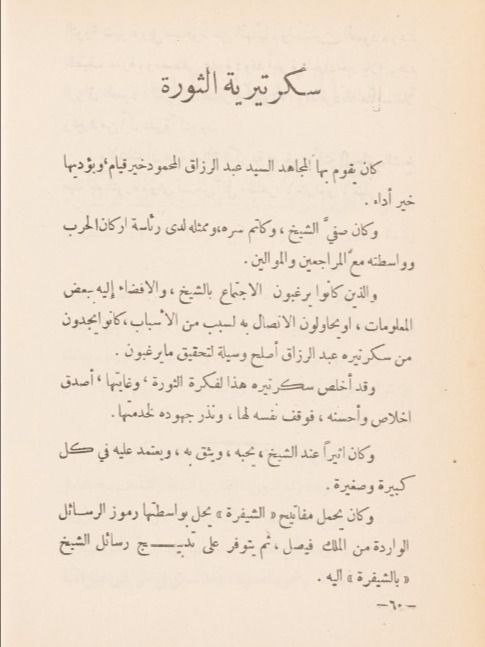 سكرتيرية الثورة
كان يقوم بها المجاهد السيد عبد الرزاق المحمود خير قيام، ويؤديها
خير أداء .
وكان صفيَّ الشيخ ، وكاتم سره، وممثله لدى رئاسة اركان الحرب
وواسطته مع المراجعين والموالين .
والذين كانوا يرغبون الاجتماع بالشيخ ، والافضاء إليه ببعض
المعلومات ، او يحاولون الاتصال به لسبب من الأسباب ، كانوا يجدون
من سكرتيره عبد الرزاق أصلح وسيلة لتحقيق ما يرغبون .
وقد أخلص سكرتيره هذا لفكرة الثورة ، وغايتها ، أصدق
اخلاص وأحسنه ، فوقف نفسه لها ، ونذر جهوده لخدمتها .
وكان اثيراً عند الشيخ ، يحبه ، ويثق به ، ويعتمد عليه في كل
كبيرة وصغيرة .
وكان يحمل مفاتيح « الشيفرة » يحل بواسطتها رموز الرسائل
الواردة من الملك فيصل ، ثم يتوفر على تدبيـــج رسائل الشيخ
« بالشيفرة » اليه .
— ٦٠ —